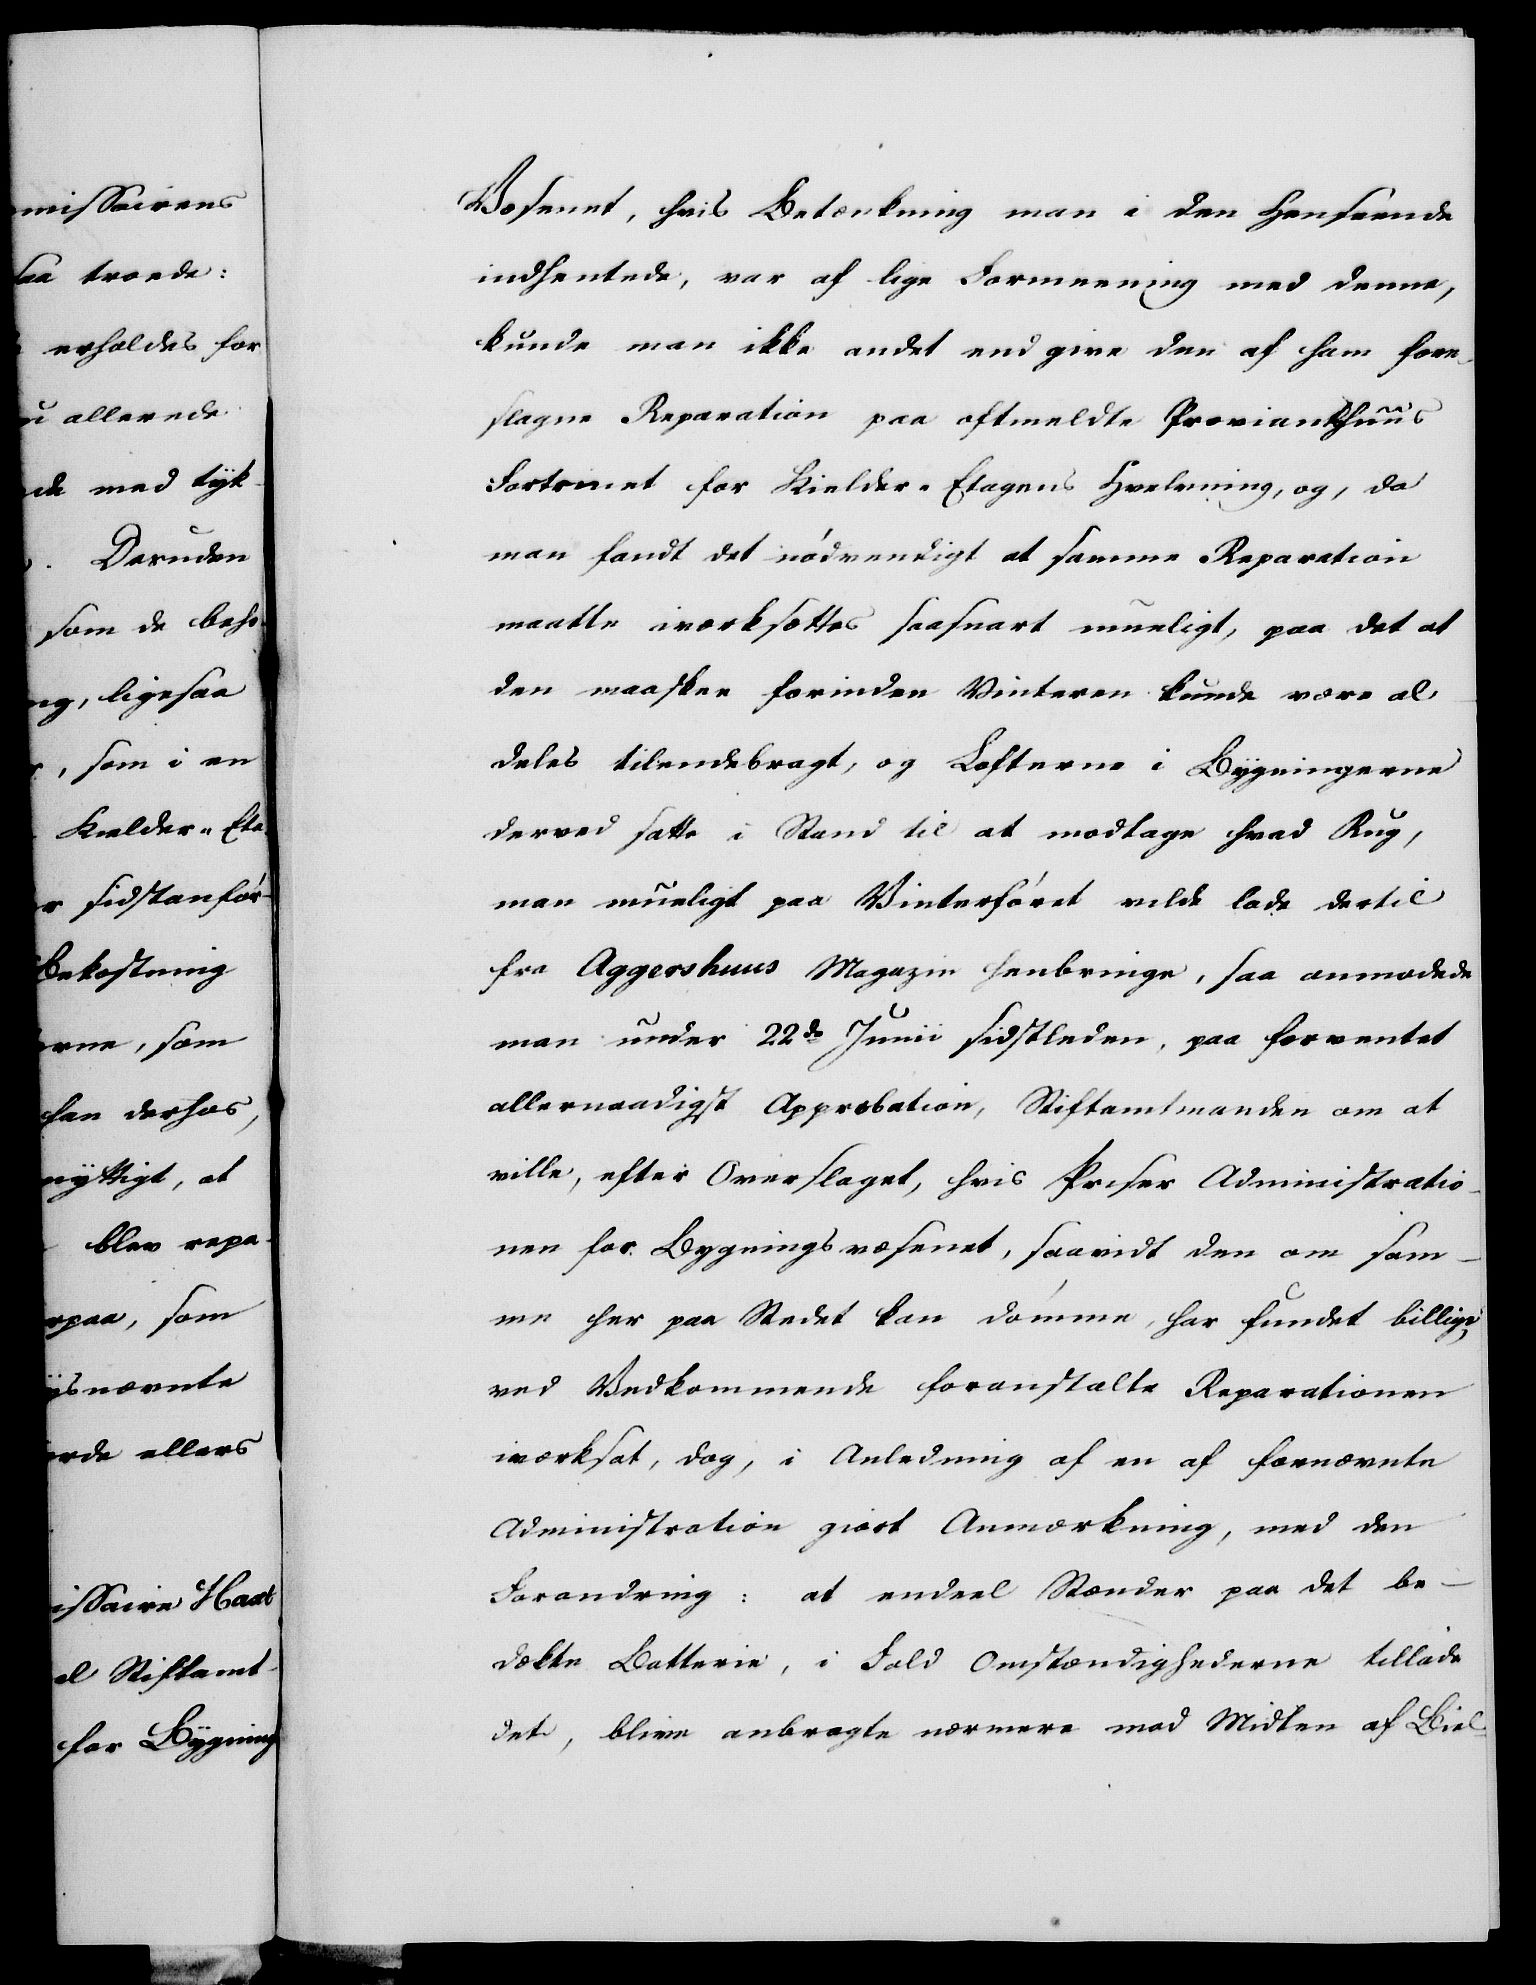 missairens
saa troede:
erholdes for
allerede
med tyk-
Desuden
som de beho-
ng, ligesaa
, som i en
Kielder-Eta-
sidstanför-
Bekostning
erne, som
han derhos,
nyttigt, at
blev repa-
rpaa, som
nævnte
ellers
issaire Haal
Stiftamt-
for Bygning
Væsenet, hvis Betænkning man i den Henseende
indhentede, var af lige Formeening med denne,
kunde man ikke andet end give den af ham fore-
slagne Reparation paa oftmeldte Provianthuus
Fortrinet for Kielder-Etagens Hvelvning, og, da
man fandt det nödvendigt at samme Reparation
maatte iværksættes saasnart mueligt, paa det at
den maaskee forinden Vinteren kunde være al-
deles tilendebragt, og Lofterne i Bygningerne
derved satte i Stand til at modtage hvad Rug,
man mueligt paa Vinterföret vilde lade dertil
fra Aggershuus Magazin henbringe, saa anmodede
man under 22de Junii sidstleden, paa forventet
allernaadigst Approbation, Stiftamtmanden om at
ville, efter Overslaget, hvis Priser Administratio-
nen for Bygningsvæsenet, saavidt den om sam-
me her paa Stedet kan dömme, har fundet billige,
ved Vedkommende foranstalte Reparationen
iværksat, dog, i Anledning af en af fornævnte
Administration giort Anmærkning, med den
Forandring: at endeel Stænder paa det be-
dækte Batterie, i Fald Omstændighederne tillade
det, blive anbragte nærmere mod Midten af Biel-